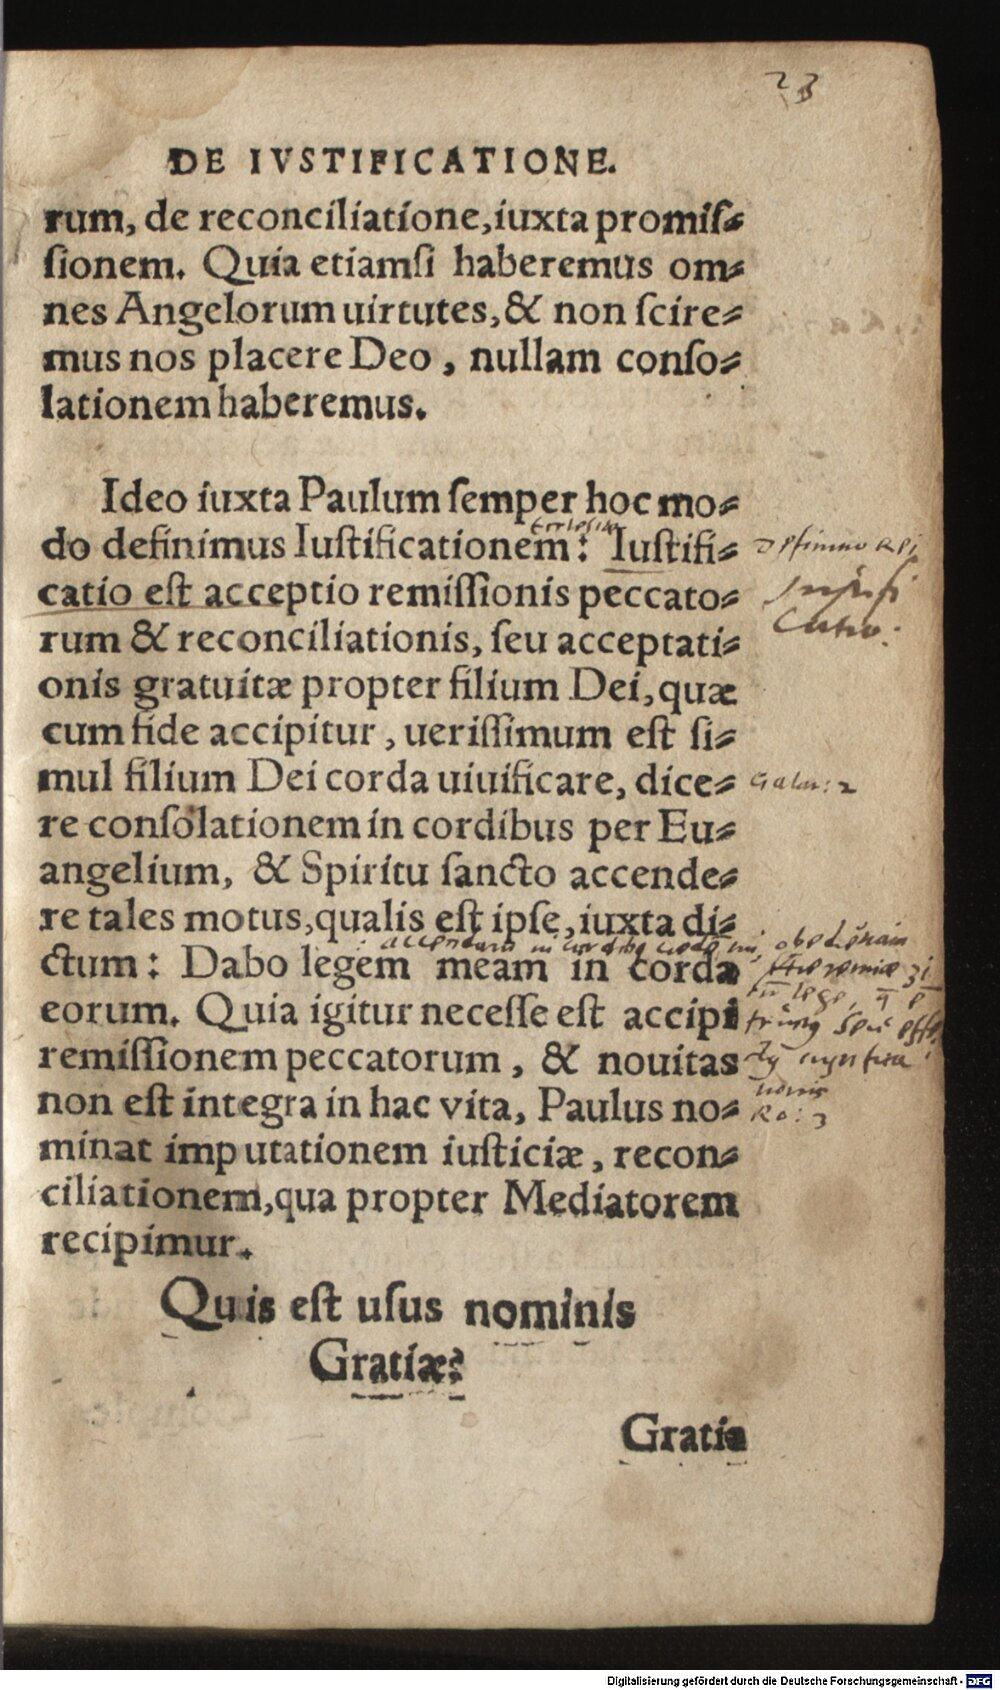 23
DE IVSTIFICATIONE.
rum, de reconciliatione, iuxta promiſ⸗
ſionem. Quia etiamſi haberemus om⸗
nes Angelorum uirtutes, & non ſcire⸗
mus nos placere Deo, nullam conſo⸗
lationem haberemus.
Ideo iuxta Paulum ſemper hoc mo⸗
do definimus Iuſtificationem: Iuſtifi⸗
catio eſt acceptio remiſſionis peccato⸗
rum & reconciliationis, ſeu acceptati⸗
onis gratuitæ propter filium Dei, quæ
cum fide accipitur, ueriſſimum eſt ſi⸗
mul filium Dei corda uiuificare, dice⸗
Galat: 2
re conſolationem in cordibus per Eu⸗
angelium, & Spiritu ſancto accende⸗
re tales motus, qualis eſt ipſe, iuxta di⸗
ctum: Dabo legem meam in corda
eorum. Quia igitur neceſſe eſt accipi
remiſſionem peccatorum, & nouitas
non eſt integra in hac vita, Paulus no⸗
Ro: 3
minat imputationem iuſticiæ, recon⸗
ciliationem, qua propter Mediatorem
recipimur.
Quis eſt uſus nominis
Gratiæ?
Gratia
Digitalisierung gefördert durch die Deutsche Forschungsgemeinschaft - DFG